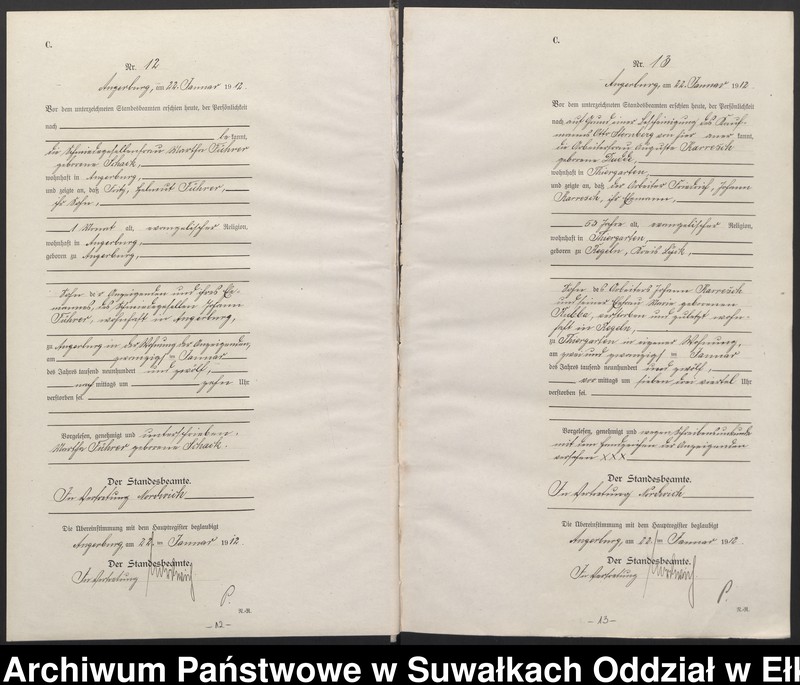 C.
Nr. 12
Angerburg, am 22. Januar 1912.
Vor dem unterzeichneten Standesbeamten erschien heute, der Persönlichkeit
nach
be kannt,
die Schmiedegesellenfrau Martha Führer
geborene Schack,
wohnhaft in Angerburg,
und zeigte an, daß Fritz, Helmut Führer,
ihr Sohn,
1 Monat alt, evangelischer Religion,
wohnhaft in Angerburg,
geboren zu Angerburg,
Sohn der Anzeigenden und ihres Ehe-
mannes, des Schmiedegesellen Johann
Führer, wohnhaft in Angerburg,
zu Angerburg in der Wohnung der Anzeigenden,
am zwanzigsten Januar
des Jahres tausend neunhundert und zwölf,
nach mittags um zehn Uhr
verstorben sei.
Vorgelesen, genehmigt und unterschrieben.
Martha Führer geborene Schack.
Der Standesbeamte.
In Vertretung
Die Übereinstimmung mit dem Hauptregister beglaubigt
Angerburg, am 22. ten Januar 1912.
Der Standesbeamte.
In Vertretung
P.
R.-R.
- 12 -
C.
Nr. 13
Angerburg, am 22. Januar 1912.
Vor dem unterzeichneten Standesbeamten erschien heute, der Persönlichkeit
nach auf Grund einer Bescheinigung des Kauf-
manns Otto Sternberg von hier aner kannt,
die Arbeiterfrau Auguste Karresch
geborene
wohnhaft in Thiergarten,
und zeigte an, daß der Arbeiter Friedrich, Johann
Karresch, ihr Ehemann,
Jahre alt, evangelischer Religion,
wohnhaft in Thiergarten,
geboren zu Regeln, Kreis Lyck,
Sohn des Arbeiters Johann Karresch
und seiner Ehefrau Marie geborenen
verstorben und zuletzt wohn-
haft in Regeln,
zu Thiergarten in eigener Wohnung,
am zwei und zwanzigsten Januar
des Jahres tausend neunhundert und zwölf,
vor mittags um sieben drei viertel Uhr
verstorben sei.
Vorgelesen, genehmigt und wegen Schreibensunkunde
mit dem Handzeichen der Anzeigenden
versehen XXX
Der Standesbeamte.
In Vertretung
Die Übereinstimmung mit dem Hauptregister beglaubigt
Angerburg, am 22. ten Januar 1912.
Der Standesbeamte.
In Vertretung
P.
R.-R.
- 13 -
Archiwum Państwowe w Suwałkach Oddział w Ełk